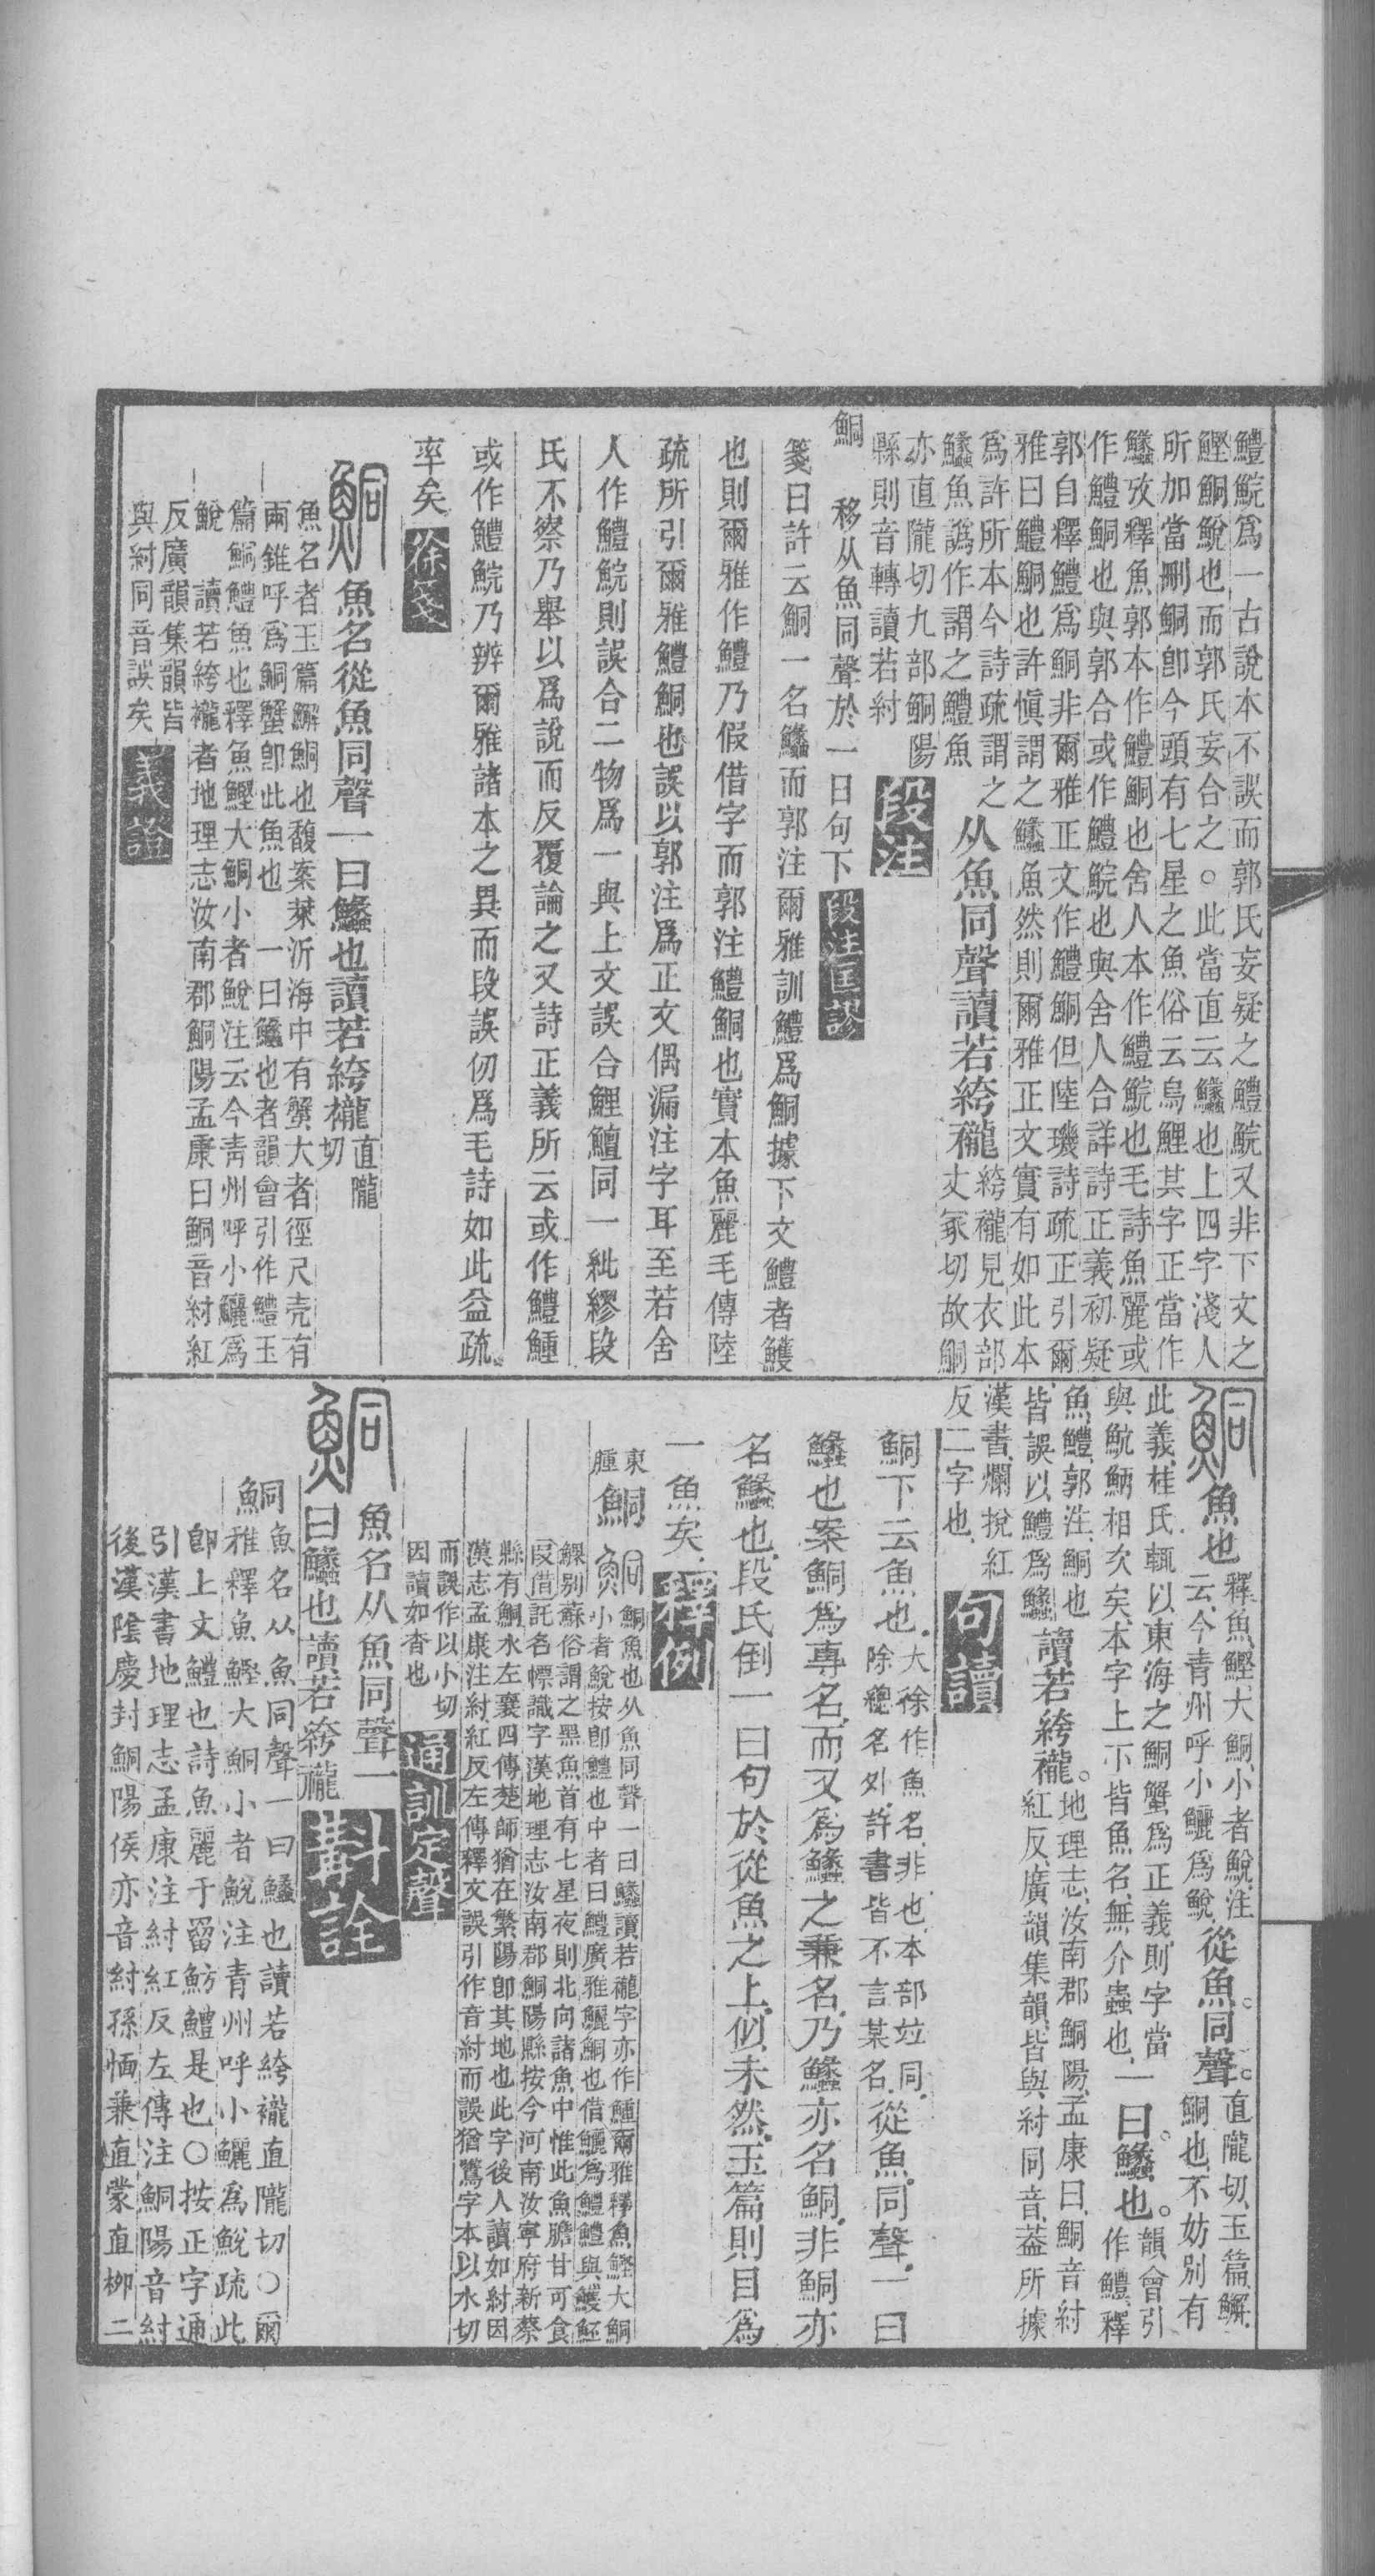 鱧鯇爲一古說本不誤而郭氏妄疑之鱧鯇又非下文之
鰹鮦鮵也而郭氏妄合之○此當直云鱶也上四字淺人
所加當刪鮦卽今頭有七星之魚俗云烏鯉其字正當作
鱶攷釋魚郭本作鱧鮦也舍人本作鱧鯇也毛詩魚麗或
作鱧鮦也與郭合或作鱧鯇也與舍人合詳詩正義初疑
郭自釋鱧爲鮦非爾雅正文作鱧鮦但陸璣詩疏正引爾
雅曰鱧鮦也許愼謂之鱶魚然則爾雅正文實有如此本
爲許所本今詩疏謂之
鱶魚譌作謂之鱧魚
从魚同聲讀若絝襱
絝襱見衣部
丈冢切故鮦
亦直隴切九部鮦陽
縣則音轉讀若紂
段注
鮦
移从魚同聲於一曰句下
段注匡謬
箋曰許云鮦一名鱶而郭注爾雅訓鱧爲鮦據下文鱧者鱯
也則爾雅作鱧乃假借字而郭注鱧鮦也實本魚麗毛傳陸
疏所引爾雅鱧鮦也誤以郭注爲正文偶漏注字耳至若舍
人作鱧鯇則誤合二物爲一與上文誤合鯉鱣同一紕繆段
氏不察乃舉以爲說而反覆論之又詩正義所云或作鱧鯇
或作鱧鯇乃辨爾雅諸本之異而段誤仞爲毛詩如此益疏
率矣
徐箋
魚名從魚同聲一曰鱶也讀若絝襱
直隴
切
魚名者玉篇鯏鮦也馥案萊沂海中有蟹大者徑尺壳有
兩錐呼爲鮦蟹卽此魚也
一曰鱶也者韻會引作鱧玉
篇鮦鱧魚也釋魚鰹大鮦小者鮵注云今青州呼小鱺爲
鮵
讀若絝襱者地理志汝南郡鮦陽孟康曰鮦音紂紅
反廣韻集韻皆
與紂同音誤矣
義證
魚也
釋魚鰹大鮦小者鮵注
云今青州呼小鱺爲鮵
從魚同聲
直隴切玉篇
鮦也不妨別有
此義桂氏輒以東海之鮦蟹爲正義則字當
與魧鮞相次矣本字上下皆魚名無介蟲也
一曰鱶也
韻會引
作鱧釋
魚鱧郭注鮦也
皆誤以鱧爲鱶
讀若絝襱
地理志汝南郡鮦陽孟康曰鮦音紂
紅反廣韻集韻皆與紂同音葢所據
漢書爛挩紅
反二字也
句讀
鮦下云魚也
大徐作魚名非也本部竝同
除總名外許書皆不言某名
從魚同聲一曰
鱶也案鮦爲專名而又爲鱶之兼名乃鱶亦名鮦非鮦亦
名鱶也段氏倒一曰句於從魚之上似未然玉篇則目爲
一魚矣
釋例
東
腫
鮦
鮦魚也从魚同聲一曰鱶讀若襱字亦作鯇爾雅釋魚鰹大鮦
小者鮵按卽鱧也中者曰鱧廣雅鱺鮦也借鱺爲鱧鱧與鱯
鰥别蘇俗謂之黑魚首有七星夜則北向諸魚中惟此魚膽甘可食
叚借託名幖識字漢地理志汝南郡鮦陽縣按今河南汝寧府新蔡
縣有鮦水左襄四傳楚師猶在繁陽卽其地也此字後人讀如紂因
漢志孟康注紂紅反左傳釋文誤引作音紂而誤猶鷕字本以水切
而誤作以小切
因讀如杳也
通訓定聲
魚名从魚同聲一
曰鱶也讀若絝襱
斠詮
鮦魚名从魚同聲一曰鱶也讀若絝襱直隴切○爾
雅釋魚鰹大鮦小者鮵注青州呼小鱺爲鮵疏此
卽上文鱧也詩魚麗于罶魴鱧是也○按正字通
引漢書地理志孟康注紂紅反左傳注鮦陽音紂
後漢陰慶封鮦陽侯亦音紂孫愐兼直蒙直柳二